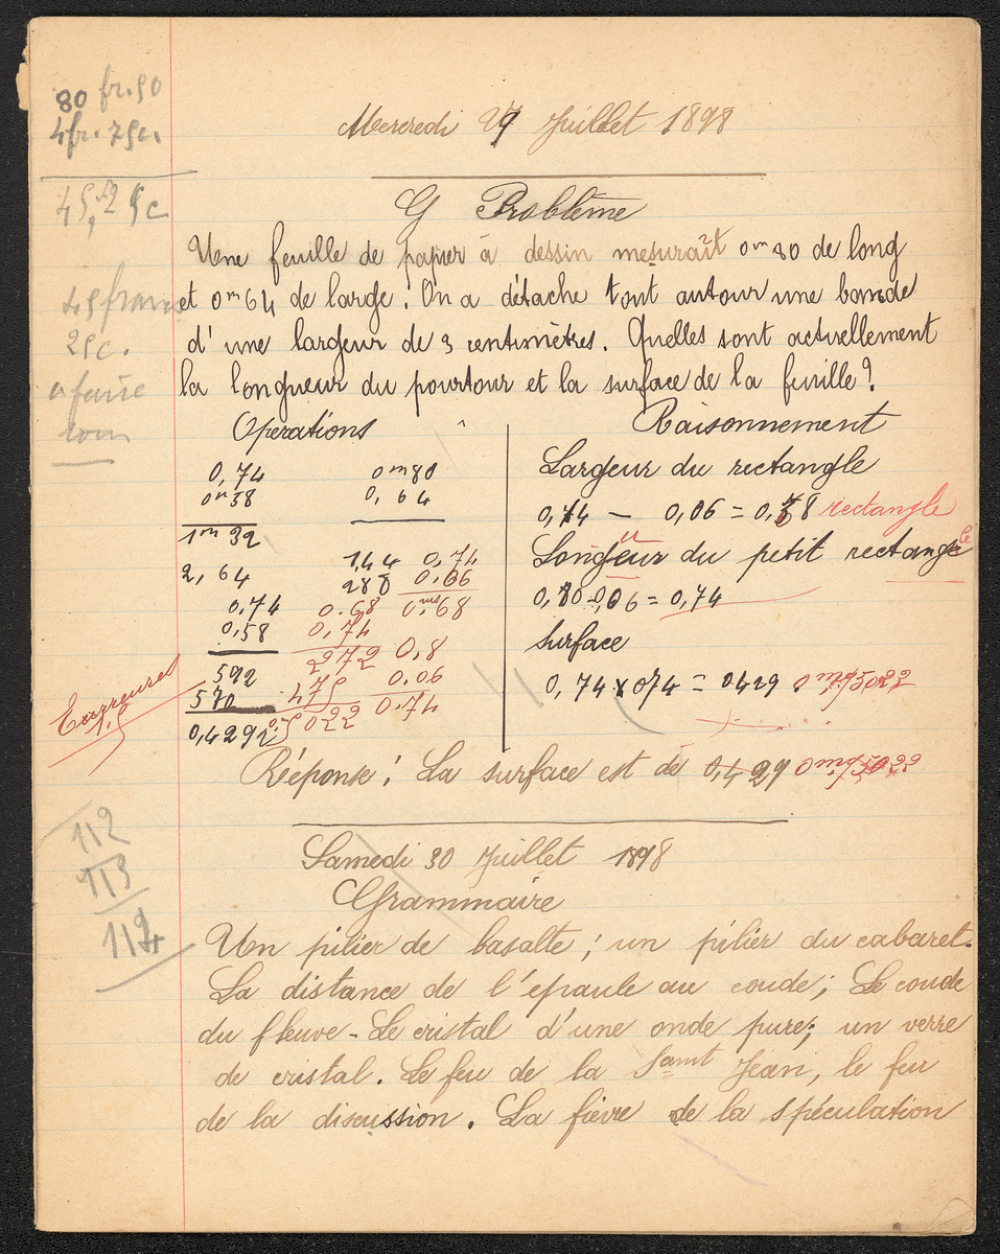 80 fr. 50
4 fr. 75 c.
45,25 c
45 francs
25 c.
a faire
Mercredi 27 Juillet 1898
Problème
Une feuille de papier à dessin mesurait 0m80 de long
et 0m64 de large. On a détache tout autour une bande
d'une largeur de 3 centimètres. Quelles sont actuellement
la longueur du pourtour et la surface de la feuille?
Opérations
0,74
0m58
1m32
2,64
0,74
0,58
592
570
0,4292
0m80
0,64
144
288
0,74
0,06
0m68
0.68
0,74
272
475
0,5022
0,8
0.06
0.74
Earreused
Raisonnement
Largeur du rectangle
0,74 - 0,06 = 0,58 rectangle
Longueur du petit rectangle
0,80-0,06 = 0,74
surface
0,74 x 074 = 0429 0mq5022
Réponse: La surface est de 0,429 0mq5022
112
113
114
Samedi 30 Juillet 1898
Grammaire
Un pilier de basalte; un pilier du cabaret.
La distance de l'épaule au coude; Le coude
du fleuve - Le cristal d'une onde pure; un verre
de cristal. Le feu de la Saint Jean, le feu
de la discussion. La fièvre de la spéculation